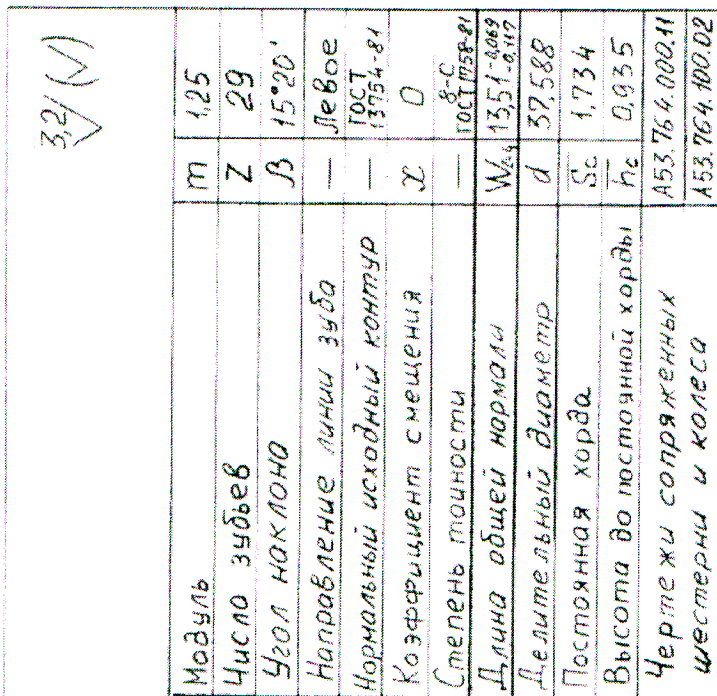 3,2/(√)
Модуль m 1,25
Число зубьев Z 29
Угол наклона β 15°20'
Направление линии зуба — Левое
Нормальный исходный контур — ГОСТ 13754-81
Коэффициент смещения x 0
Степень точности — 8-С ГОСТ 1758-81
Длина общей нормали W 13,51 -0,069 -0,117
Делительный диаметр d 37,588
Постоянная хорда S̄c 1,734
Высота до постоянной хорды h̄c 0,935
Чертежи сопряженных А53.764.000.11
шестерни и колеса А53.764.100.02